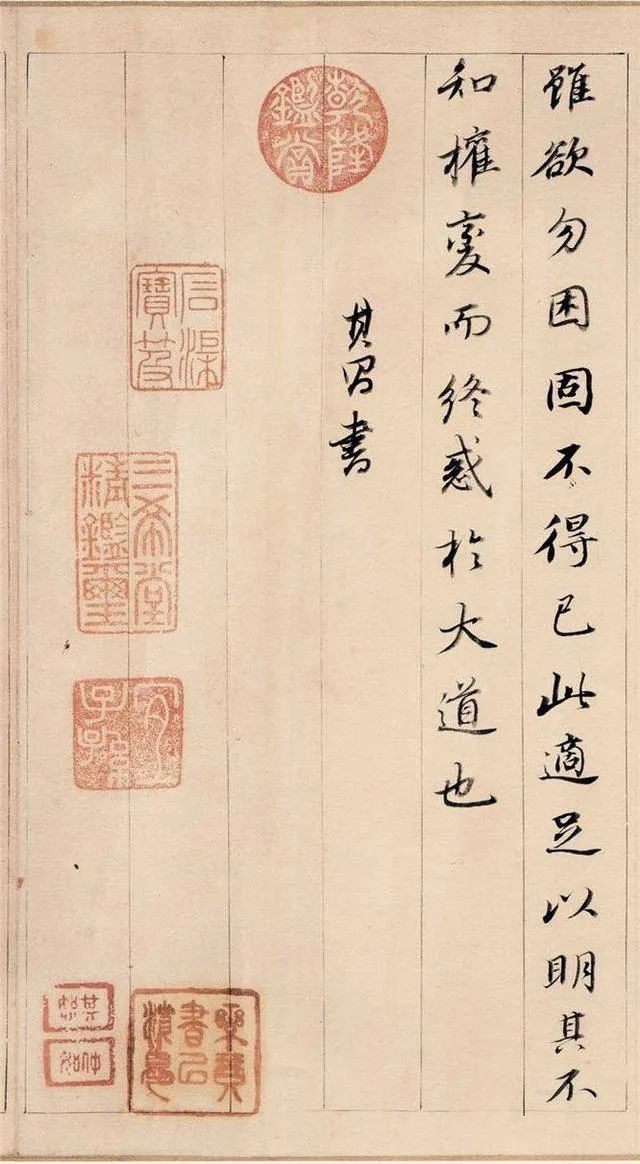 雖欲勿困固不得已此適足以明其不
知權變而終惑於大道也
其昌書
乾隆
鑑賞
石渠
寶笈
三希堂
精鑑璽
宜
子孫